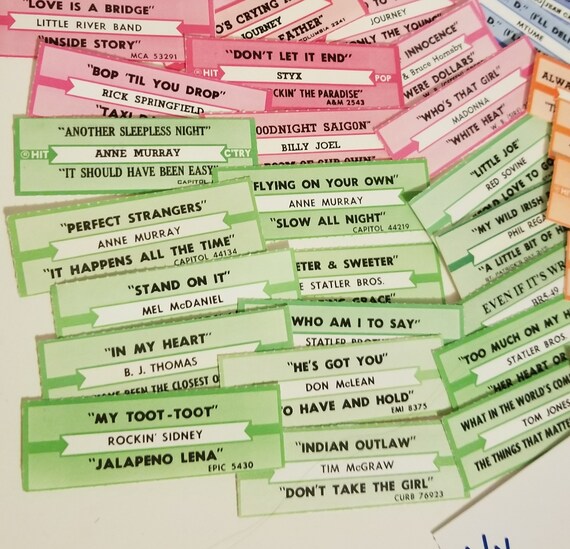 "LOVE IS A BRIDGE"
LITTLE RIVER BAND
"INSIDE STORY"
MCA 53291
CRYING
JOURNEY
FATHER"
COLUMBIA 2241
JOURNEY
ONLY THE YOUNG"
INNOCENCE"
& Bruce Hornsby
WERE DOLLARS"
"DON'T LET IT END"
HIT
STYX
POP
"ROCKIN' THE PARADISE"
A&M 2543
"BOP 'TIL YOU DROP"
RICK SPRINGFIELD
"TAXI D
"WHO'S THAT GIRL"
MADONNA
"WHITE HEAT"
"ANOTHER SLEEPLESS NIGHT"
HIT
ANNE MURRAY
C'TRY
"IT SHOULD HAVE BEEN EASY"
CAPITOL
OODNIGHT SAIGON"
BILLY JOEL
ROOM OF OUR OWN"
"LITTLE JOE"
RED SOVINE
LOVE TO GO
FLYING ON YOUR OWN"
ANNE MURRAY
"SLOW ALL NIGHT"
CAPITOL 44219
"MY WILD IRISH
PHIL REGA
"A LITTLE BIT OF H
"PERFECT STRANGERS"
ANNE MURRAY
"IT HAPPENS ALL THE TIME"
CAPITOL 44134
ETER & SWEETER"
E STATLER BROS.
GRACE"
EVEN IF IT'S WR
"STAND ON IT"
MEL McDANIEL
WHO AM I TO SAY"
STATLER BROTH
"TOO MUCH ON MY H
STATLER BROS.
"HER HEART OR
"IN MY HEART"
B. J. THOMAS
HAVE BEEN THE CLOSEST O
"HE'S GOT YOU"
DON McLEAN
O HAVE AND HOLD"
EMI 8375
WHAT IN THE WORLD'S COM
TOM JONES
THE THINGS THAT MATTER
"MY TOOT-TOOT"
ROCKIN' SIDNEY
"JALAPENO LENA"
EPIC 5430
"INDIAN OUTLAW"
TIM McGRAW
"DON'T TAKE THE GIRL"
CURB 76923
ALWA